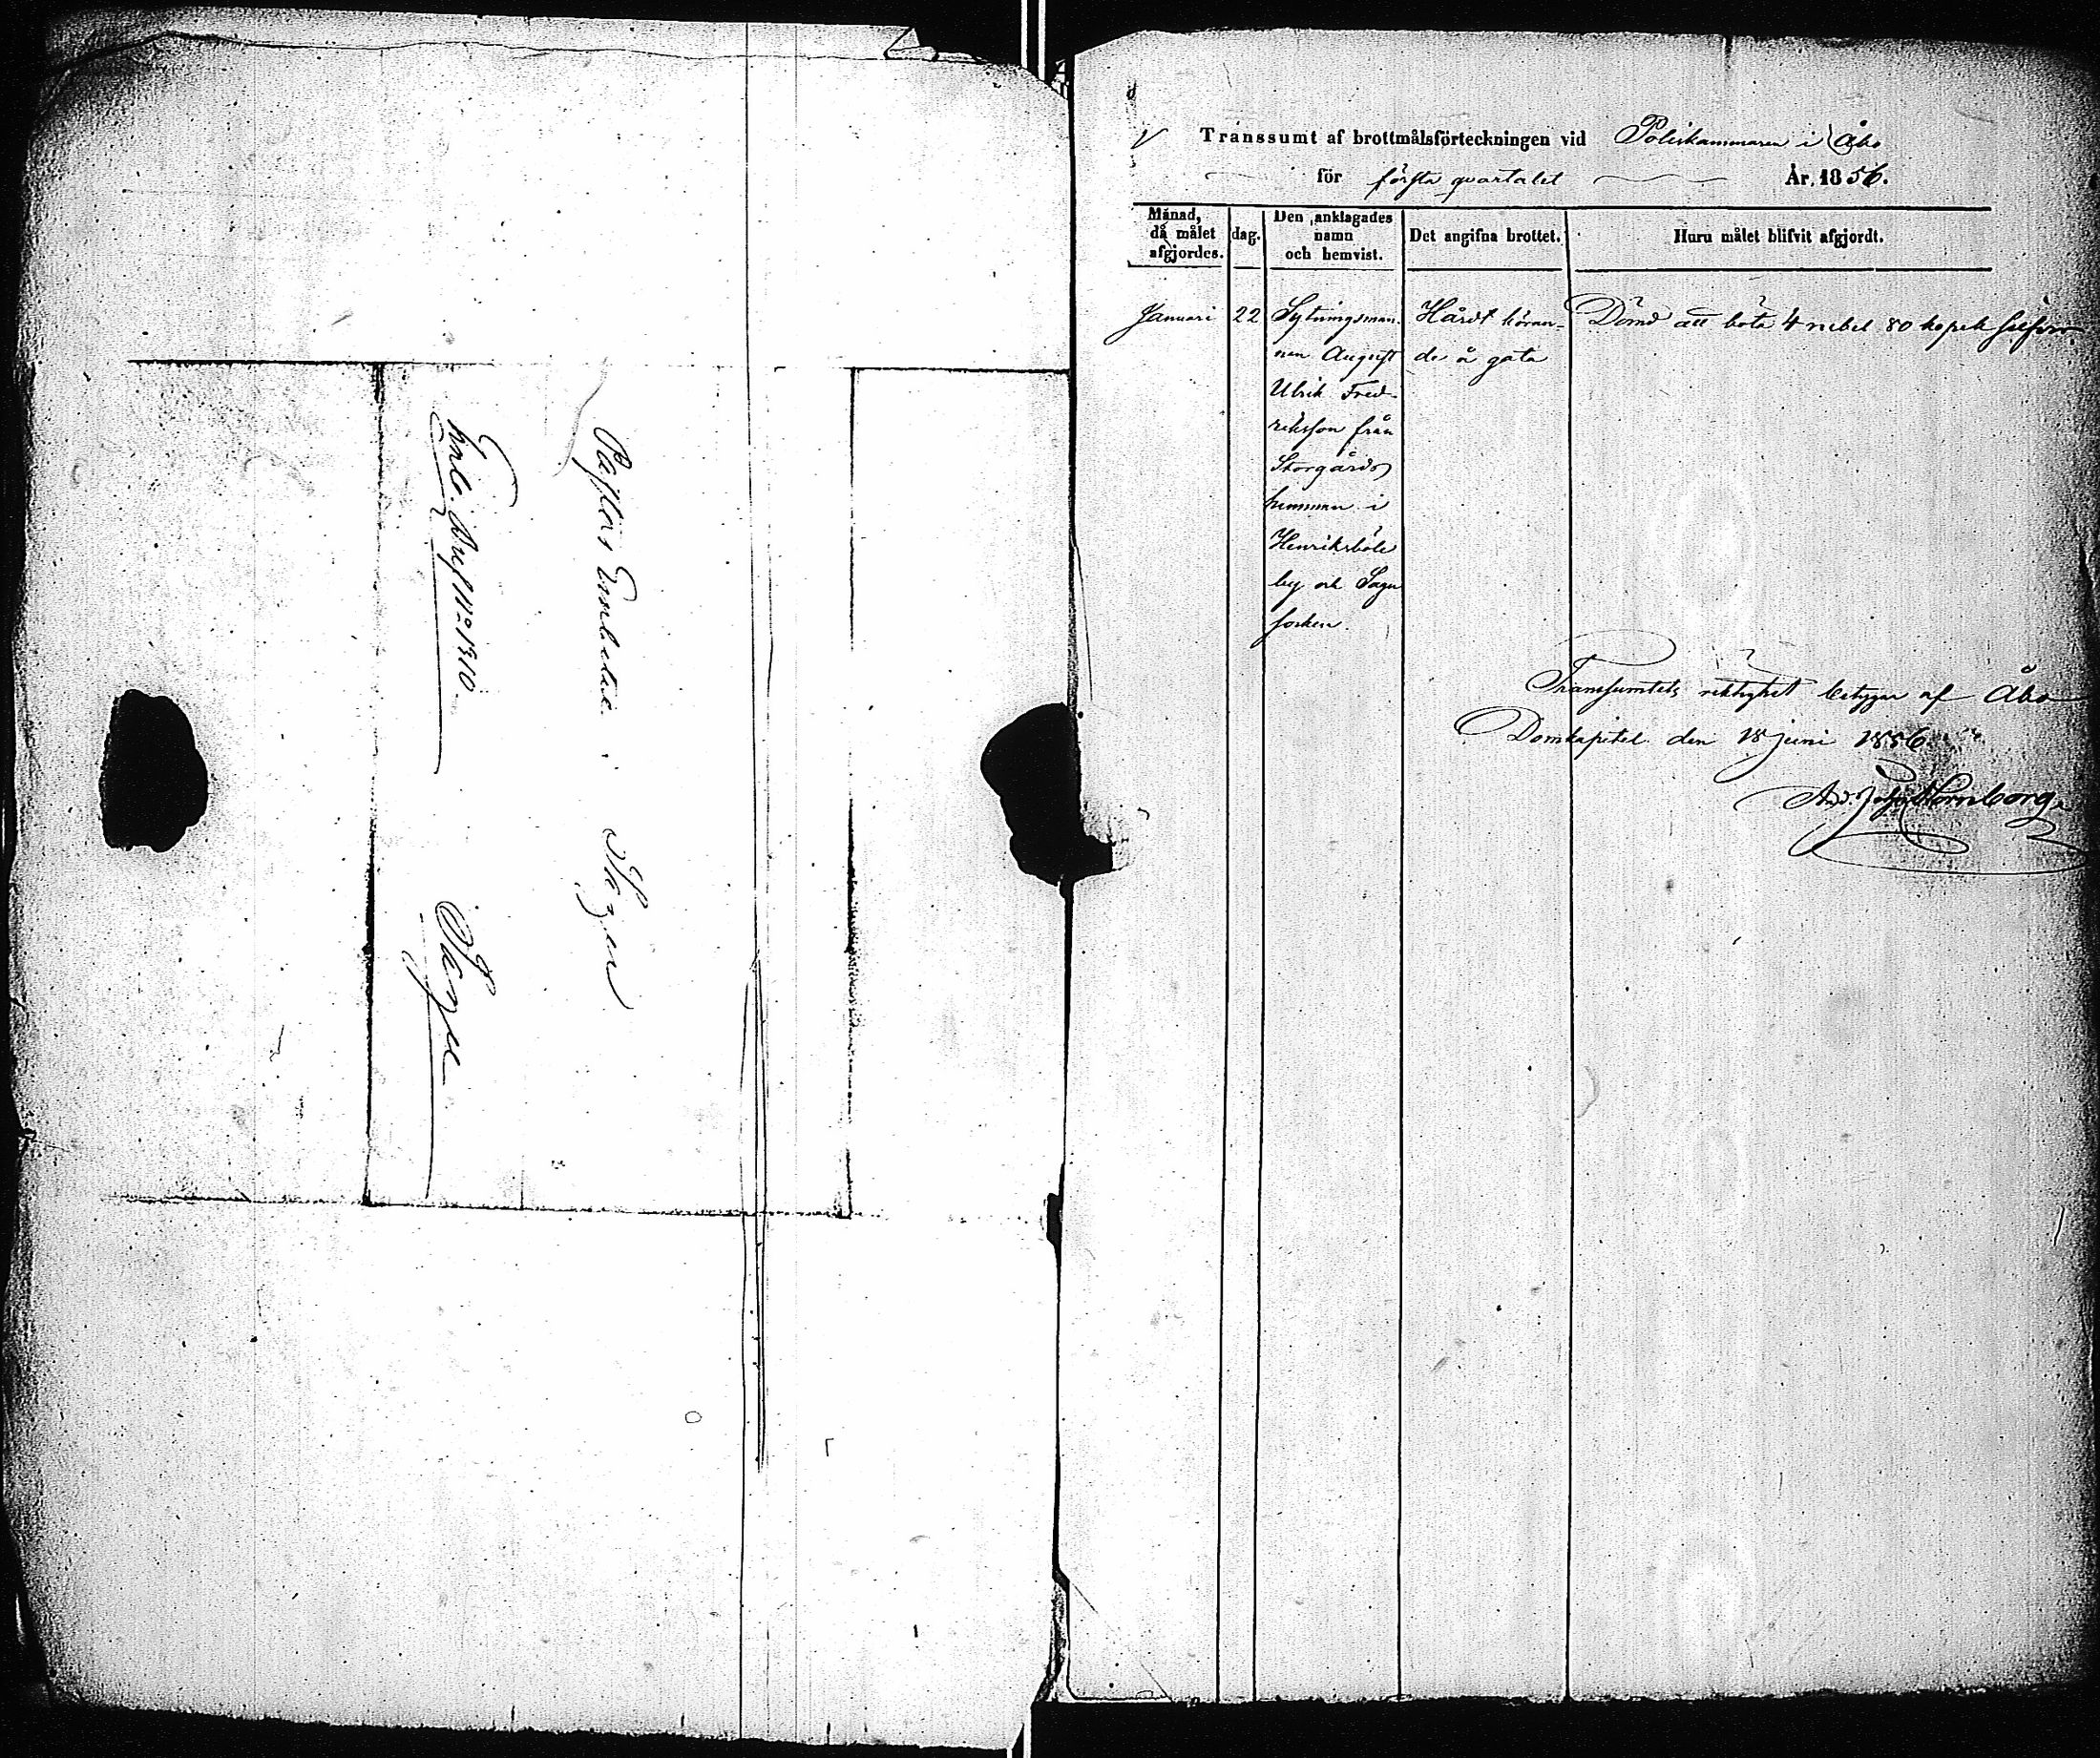 Pastors Embetet i Sagu
Embb. Bref No 1310.
Sagu
Transsumt af brottmålsförteckningen vid Poliskammaren i Åbo
för första qvartalet År 1856.
Månad,
då målet
afgjordes.
dag.
Den anklagades
namn
och hemvist.
Det angifna brottet.
Huru målet blifvit afgjordt.
Januari 22 Sytningsman- Hårdt köran- Dömd att böta 4 rubel 80 kopek silfver
nen August de å gata
Ulrik Fred-
riksson från
Storgårds
hemman i
Henriksböle
by och Sagu
socken.
Transsumtets riktighet betygar af Åbo
Domkapitel den 18 juni 1856.